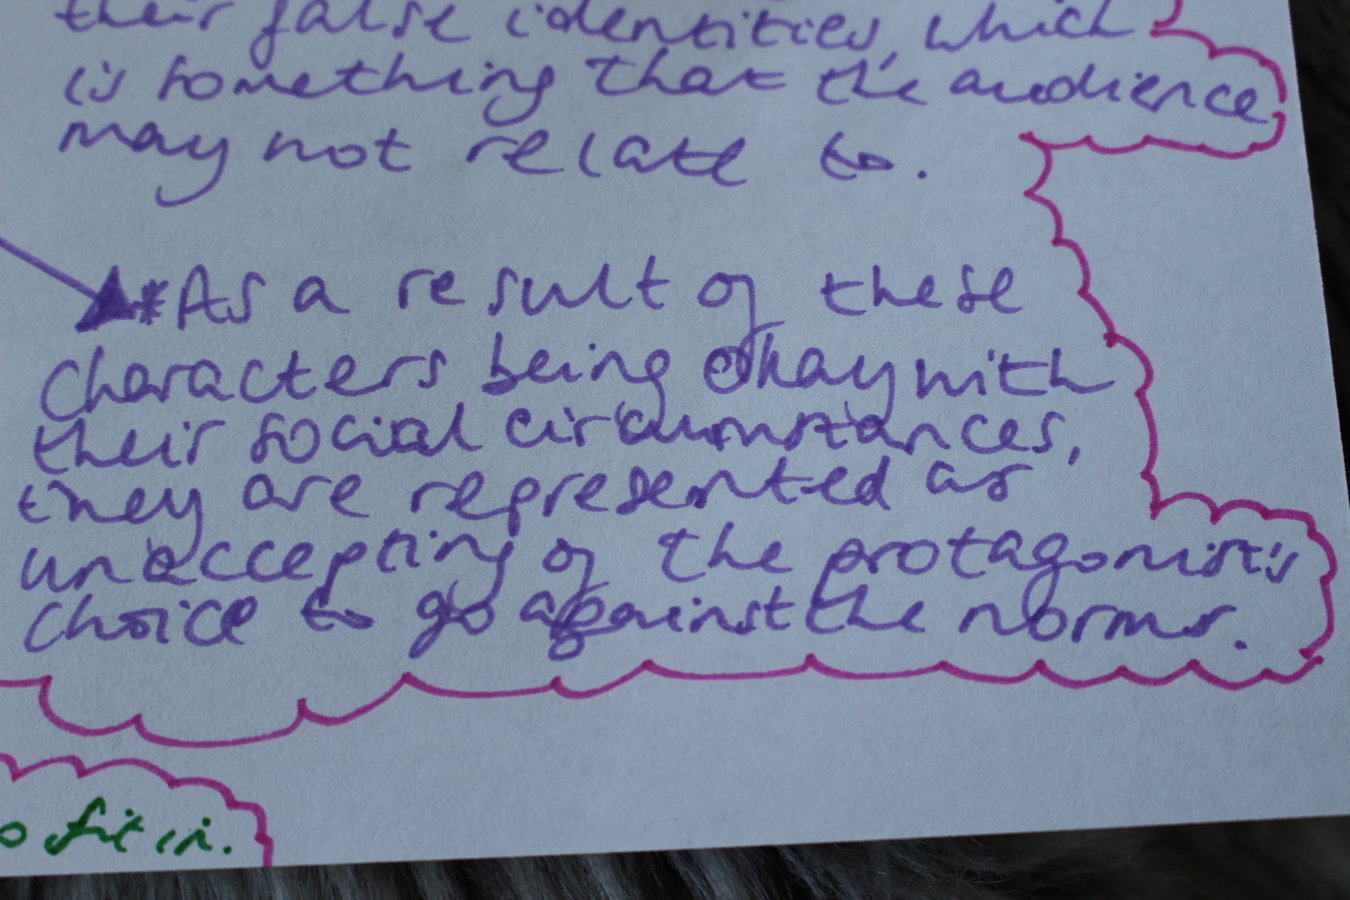 their false identities, which
is something that the audience
may not relate to.
*As a result of these
characters being okay with
their social circumstances,
they are represented as
unaccepting of the protagonist's
choice to go against the norms.
o fit in.